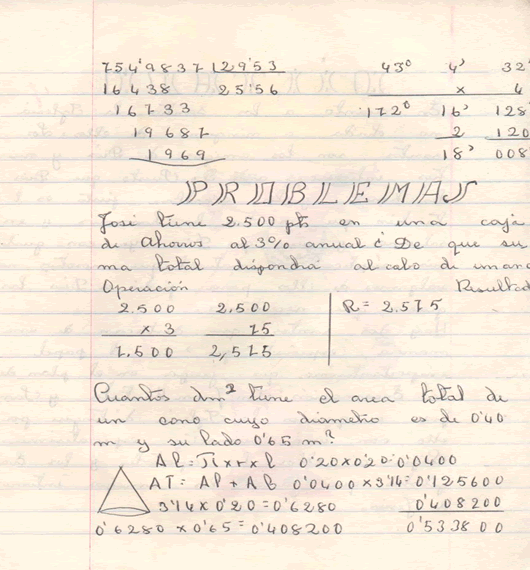 754'9837 | 29'53 43º 4' 32"
16 438 25'56 x 4
16733 172º 16' 128
19 687 2 120
1969 18' 008
PROBLEMAS
José tiene 2.500 pts en una caja
de Ahorros al 3% anual ¿ De que su
ma total dispondrá al cabo de un
Operación Resultad
2.500 2,500 R = 2.575
x 3 75
7,500 2,575
Cuantos dm² tiene el area total de
un cono cuyo diametro es de 0'40
m y su lado 0'65 m?
Al = π x r x l 0'20 x 0'20 = 0'0400
AT = Al + Ab 0'0400 x 3'14 = 0'125600
3'14 x 0'20 = 0'6280 0'408200
0'6280 x 0'65 = 0'408200 0'533800